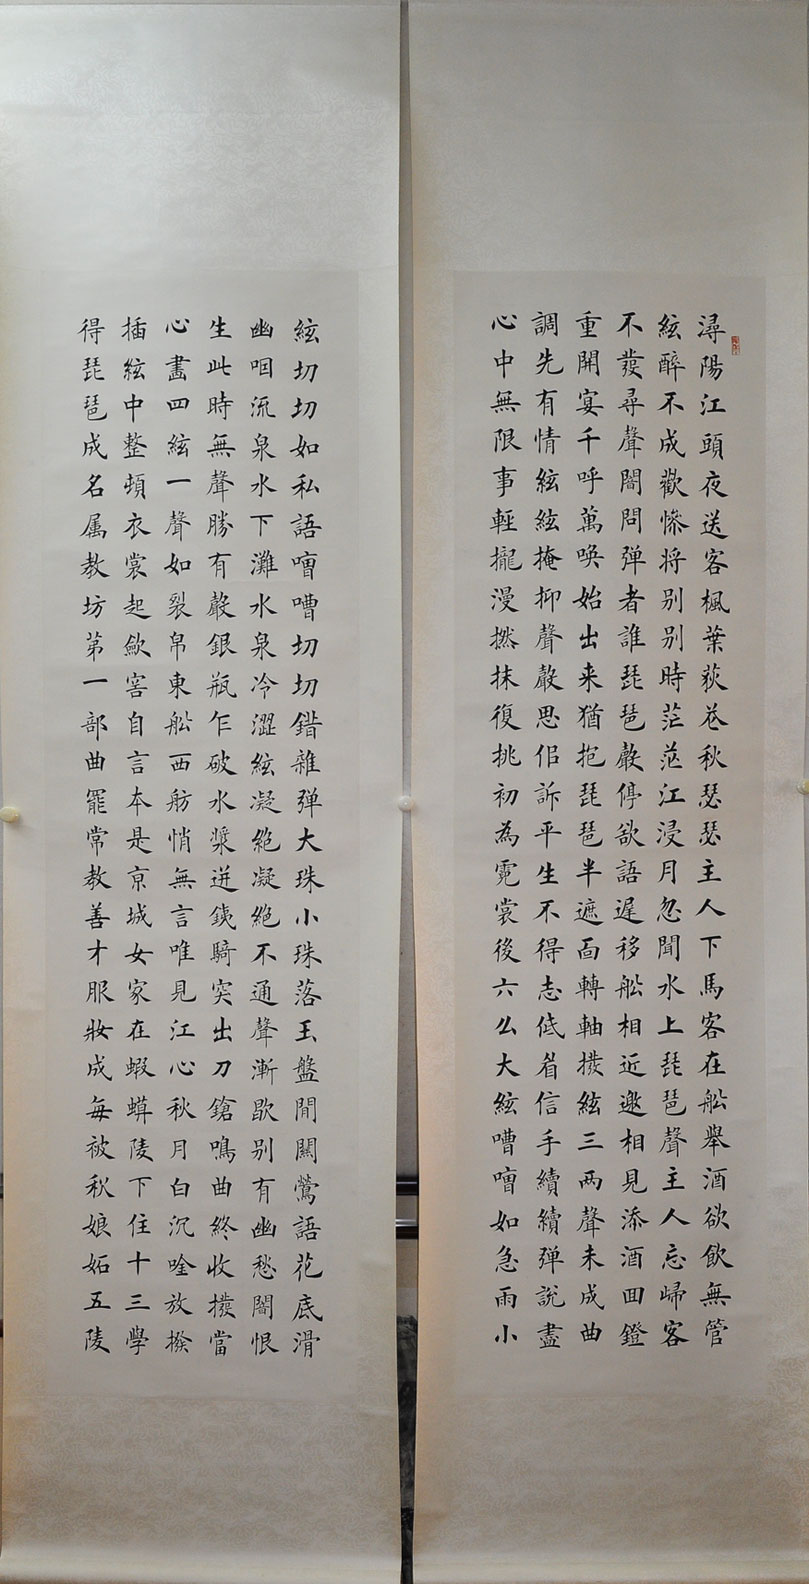 潯陽江頭夜送客楓葉荻花秋瑟瑟主人下馬客在舩舉酒欲飲無管
絃醉不成歡慘将别别時茫茫江浸月忽聞水上琵琶聲主人忘歸客
不發尋聲闇問弹者誰琵琶聲停欲語遲移舩相近邀相見添酒回鐙
重開宴千呼萬唤始出来猶抱琵琶半遮面轉軸撥絃三两聲未成曲
調先有情絃絃掩抑聲聲思佀訴平生不得志低眉信手續續弹說盡
心中無限事輕攏漫撚抹復挑初為霓裳後六幺大絃嘈嘈如急雨小
絃切切如私語嘈嘈切切錯雜弹大珠小珠落玉盤間關鶯語花底滑
幽咽流泉水下灘水泉冷澀絃凝絶凝絶不通聲漸歇别有幽愁闇恨
生此時無聲勝有聲銀瓶乍破水漿迸鐵騎突出刀鎗鳴曲終收撥當
心畫四絃一聲如裂帛東舩西舫悄無言唯見江心秋月白沉吟放撥
插絃中整頓衣裳起斂容自言本是京城女家在蝦蟆陵下住十三學
得琵琶成名属教坊第一部曲罷常教善才服妝成每被秋娘妬五陵